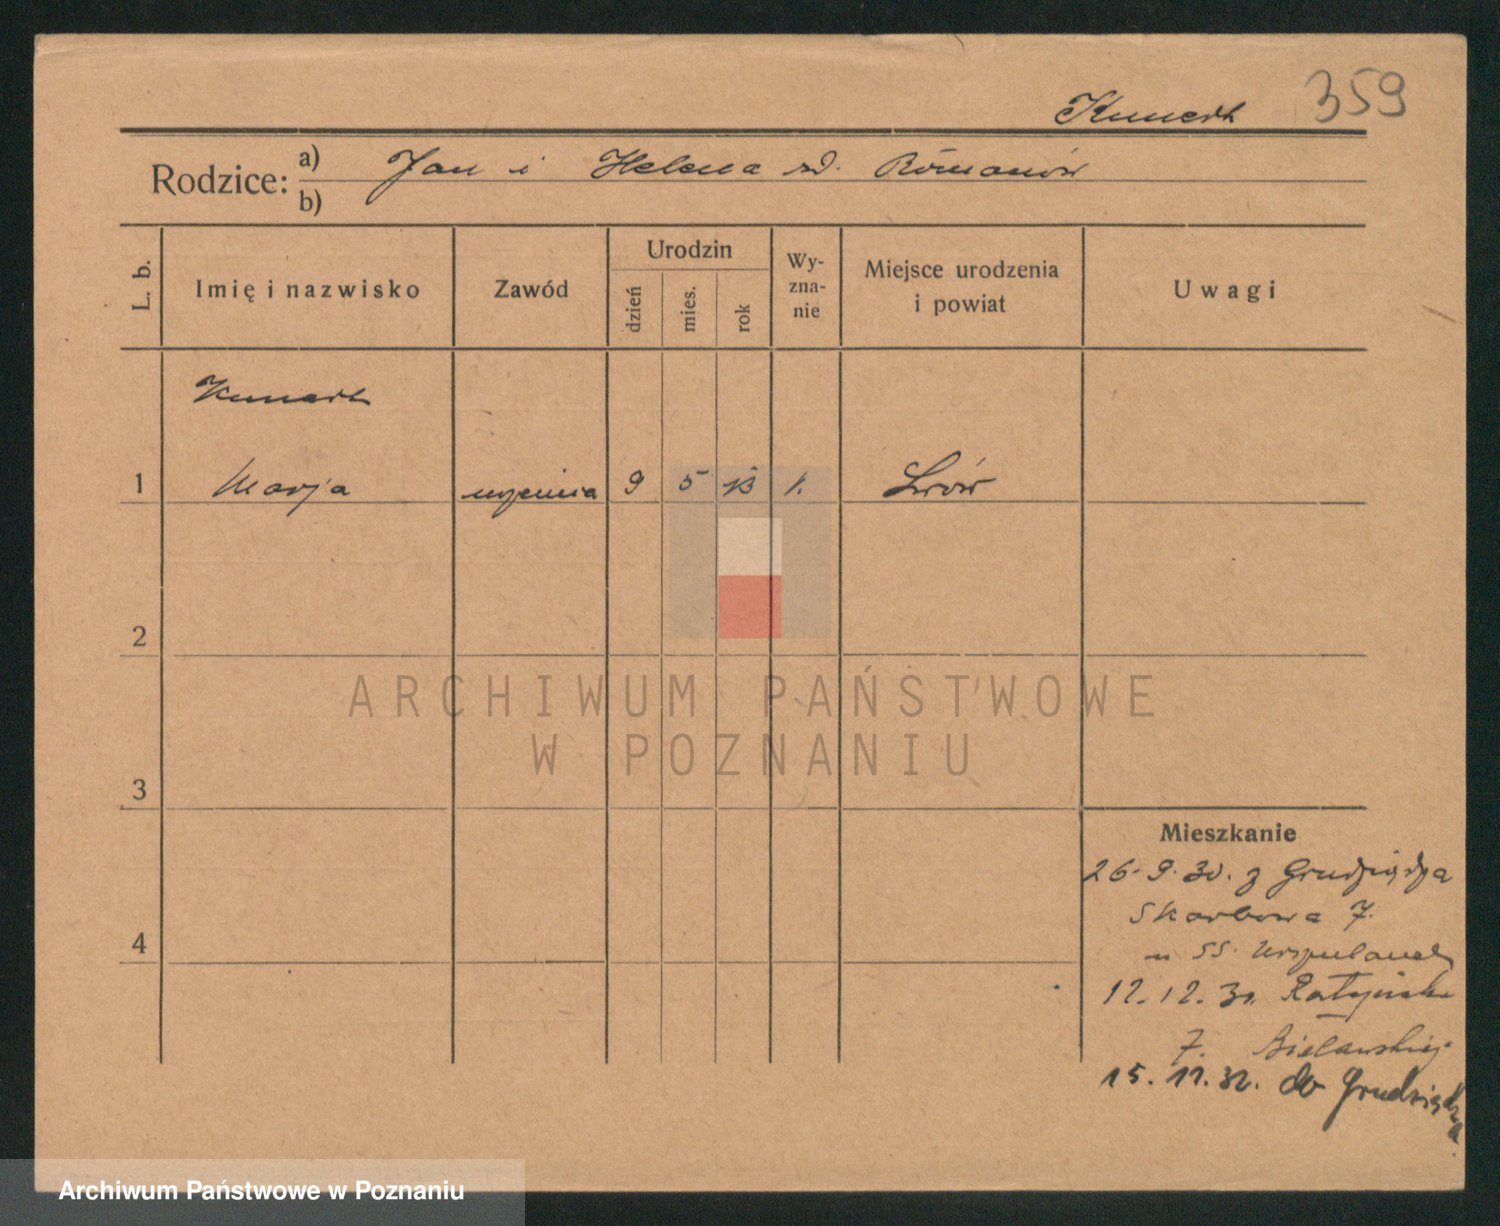 359
Kunert
Rodzice: a) Jan i Helena zd. Romanów
b)
L. b. Imię i nazwisko Zawód Urodzin dzień mies. rok Wyznanie Miejsce urodzenia i powiat Uwagi
Kunert
1 Marja uczenica 9 5 13 Lwów
2
3
4
Mieszkanie
26.9.30. z Grudziądza
Skarbowa 7.
u SS. Urszulanek
12.12.31.
7. Bielawskiej
15.12.32. do Grudziądza
ARCHIWUM PAŃSTWOWE
W POZNANIU
Archiwum Państwowe w Poznaniu